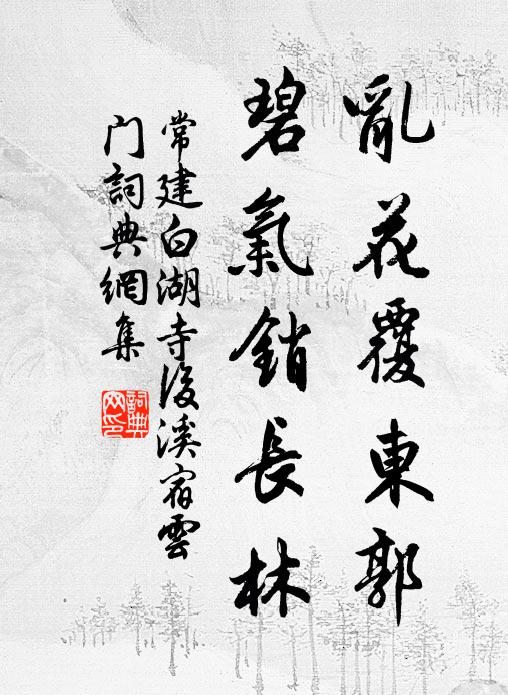 亂花覆東郭
碧氣銷長林
常建白湖寺後溪宿雲
门詞典網集
詞典网印